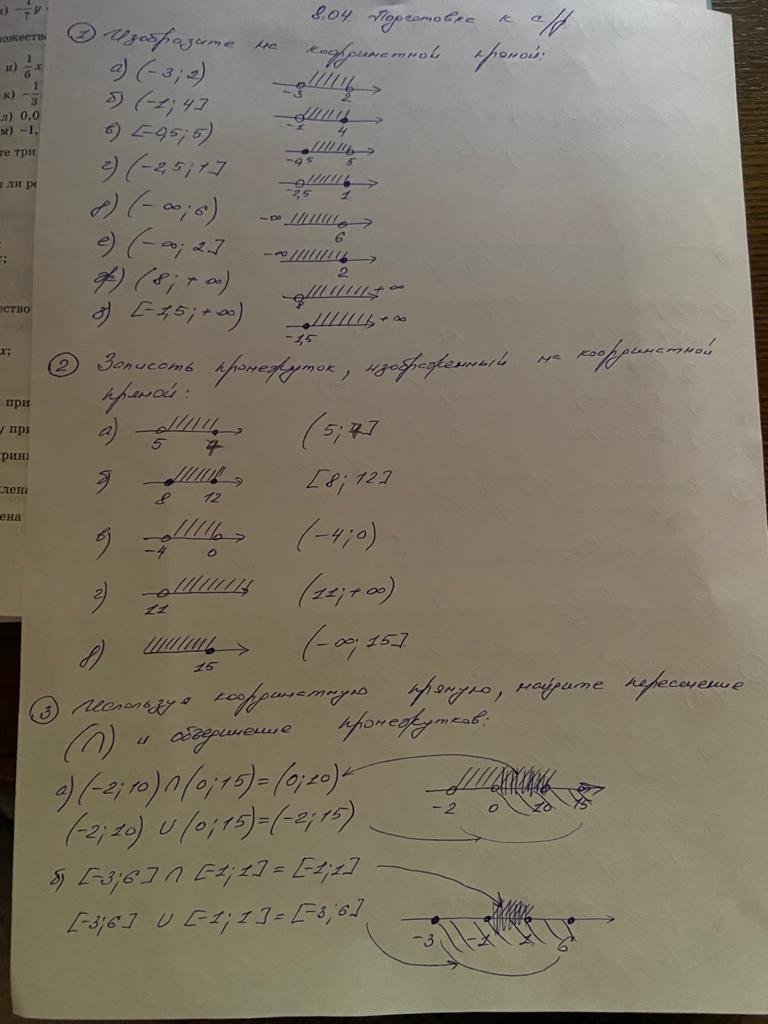 8.04. Подготовка к с/р
① Изобразите на координатной прямой:
а) (-3; 2)
-3 2
б) (-1; 4]
-1 4
в) [-0,5; 5)
-0,5 5
г) (-2,5; 1]
-2,5 1
д) (-∞; 6)
-∞ 6
е) (-∞; 2]
-∞ 2
ж) (8; +∞)
8 +∞
з) [-1,5; +∞)
-1,5 +∞
② Записать промежуток, изображенный на координатной
прямой:
а) 5 7 (5; 7]
б) 8 12 [8; 12]
в) -4 0 (-4; 0)
г) 11 (11; +∞)
д) 15 (-∞; 15]
③ Используя координатную прямую, найдите пересечение
(∩) и объединение промежутков:
а) (-2; 10) ∩ (0; 15) = (0; 10)
-2 0 10 15
(-2; 10) ∪ (0; 15) = (-2; 15)
б) [-3; 6] ∩ [-1; 1] = [-1; 1]
[-3; 6] ∪ [-1; 1] = [-3; 6]
-3 -1 1 6
-1/7 y
и) 1/6 x
к) -1/3
л) 0,0
м) -1,
те три
ество
х;
при
у при
лена
ена